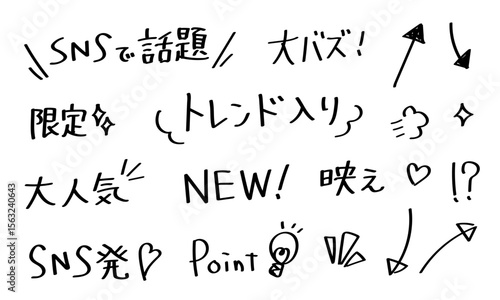 SNSで話題 大バズ!
限定 トレンド入り
大人気 NEW! 映え ♡ !?
SNS発♡ Point
Adobe Stock | #1563240643
Adobe Stock